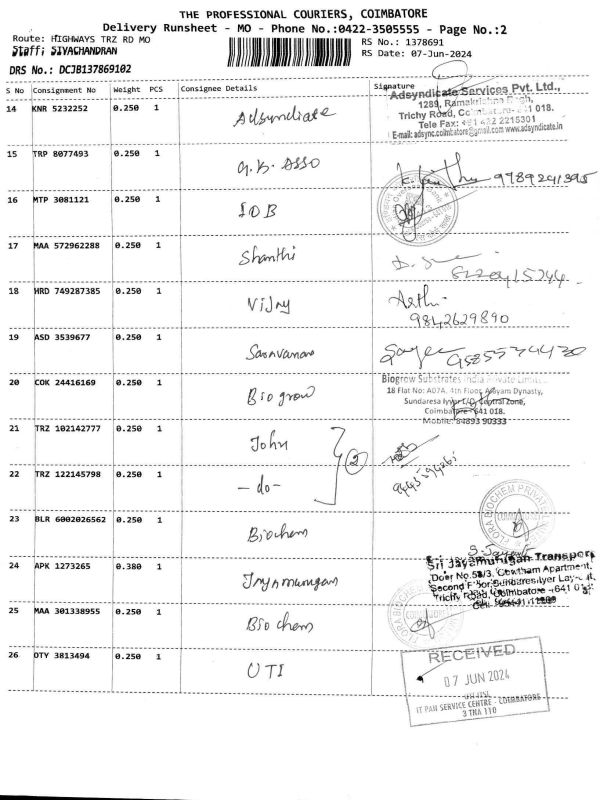 THE PROFESSIONAL COURIERS, COIMBATORE
Delivery Runsheet - MO - Phone No.:0422-3505555 - Page No.:2
Route: HIGHWAYS TRZ RD MO
RS No.: 1378691
Staff: SIVACHANDRAN
RS Date: 07-Jun-2024
DRS No.: DCJB137869102
S No Consignment No Weight PCS Consignee Details Signature
14 KNR 5232252 0.250 1 Adsyndicate
Adsyndicate Services Pvt. Ltd.,
1289, Ramakrishna
Trichy Road, 018.
Tele Fax: +91 422 2216301
E-mail: adsync.coimbatore@gmail.com www.adsyndicate.in
15 TRP 8077493 0.250 1 G.K. ASSO
9789241395
16 MTP 3081121 0.250 1 IOB
17 MAA 572962288 0.250 1 Shanthi
18 HRD 749287385 0.250 1 Vijay
Arthi
9842629890
19 ASD 3539677 0.250 1 Saravanan
20 COK 24416169 0.250 1 Biogrow
Biogrow Substrates India Private Limited
18 Flat No: A07A, 4th Floor, Dynasty,
Sundaresa Iyyer L/O, Central Zone,
Coimbatore - 641 018.
Mobile: 84893 90333
21 TRZ 102142777 0.250 1 John
2
22 TRZ 122145798 0.250 1 - do -
23 BLR 6002026562 0.250 1 Biochem
FLORA BIOCHEM PRIVATE
24 APK 1273265 0.380 1 Jayamurugan
Sri Jayamurugan Transport
Door No.53/3, Gowtham Apartment,
Second Floor, Sundaresaiyer Layout,
Trichy Road, Coimbatore - 641 018
25 MAA 301338955 0.250 1 Biochem
26 OTY 3813494 0.250 1 UTI
RECEIVED
07 JUN 2024
IT PAN SERVICE CENTRE - COIMBATORE
3 TNA 110